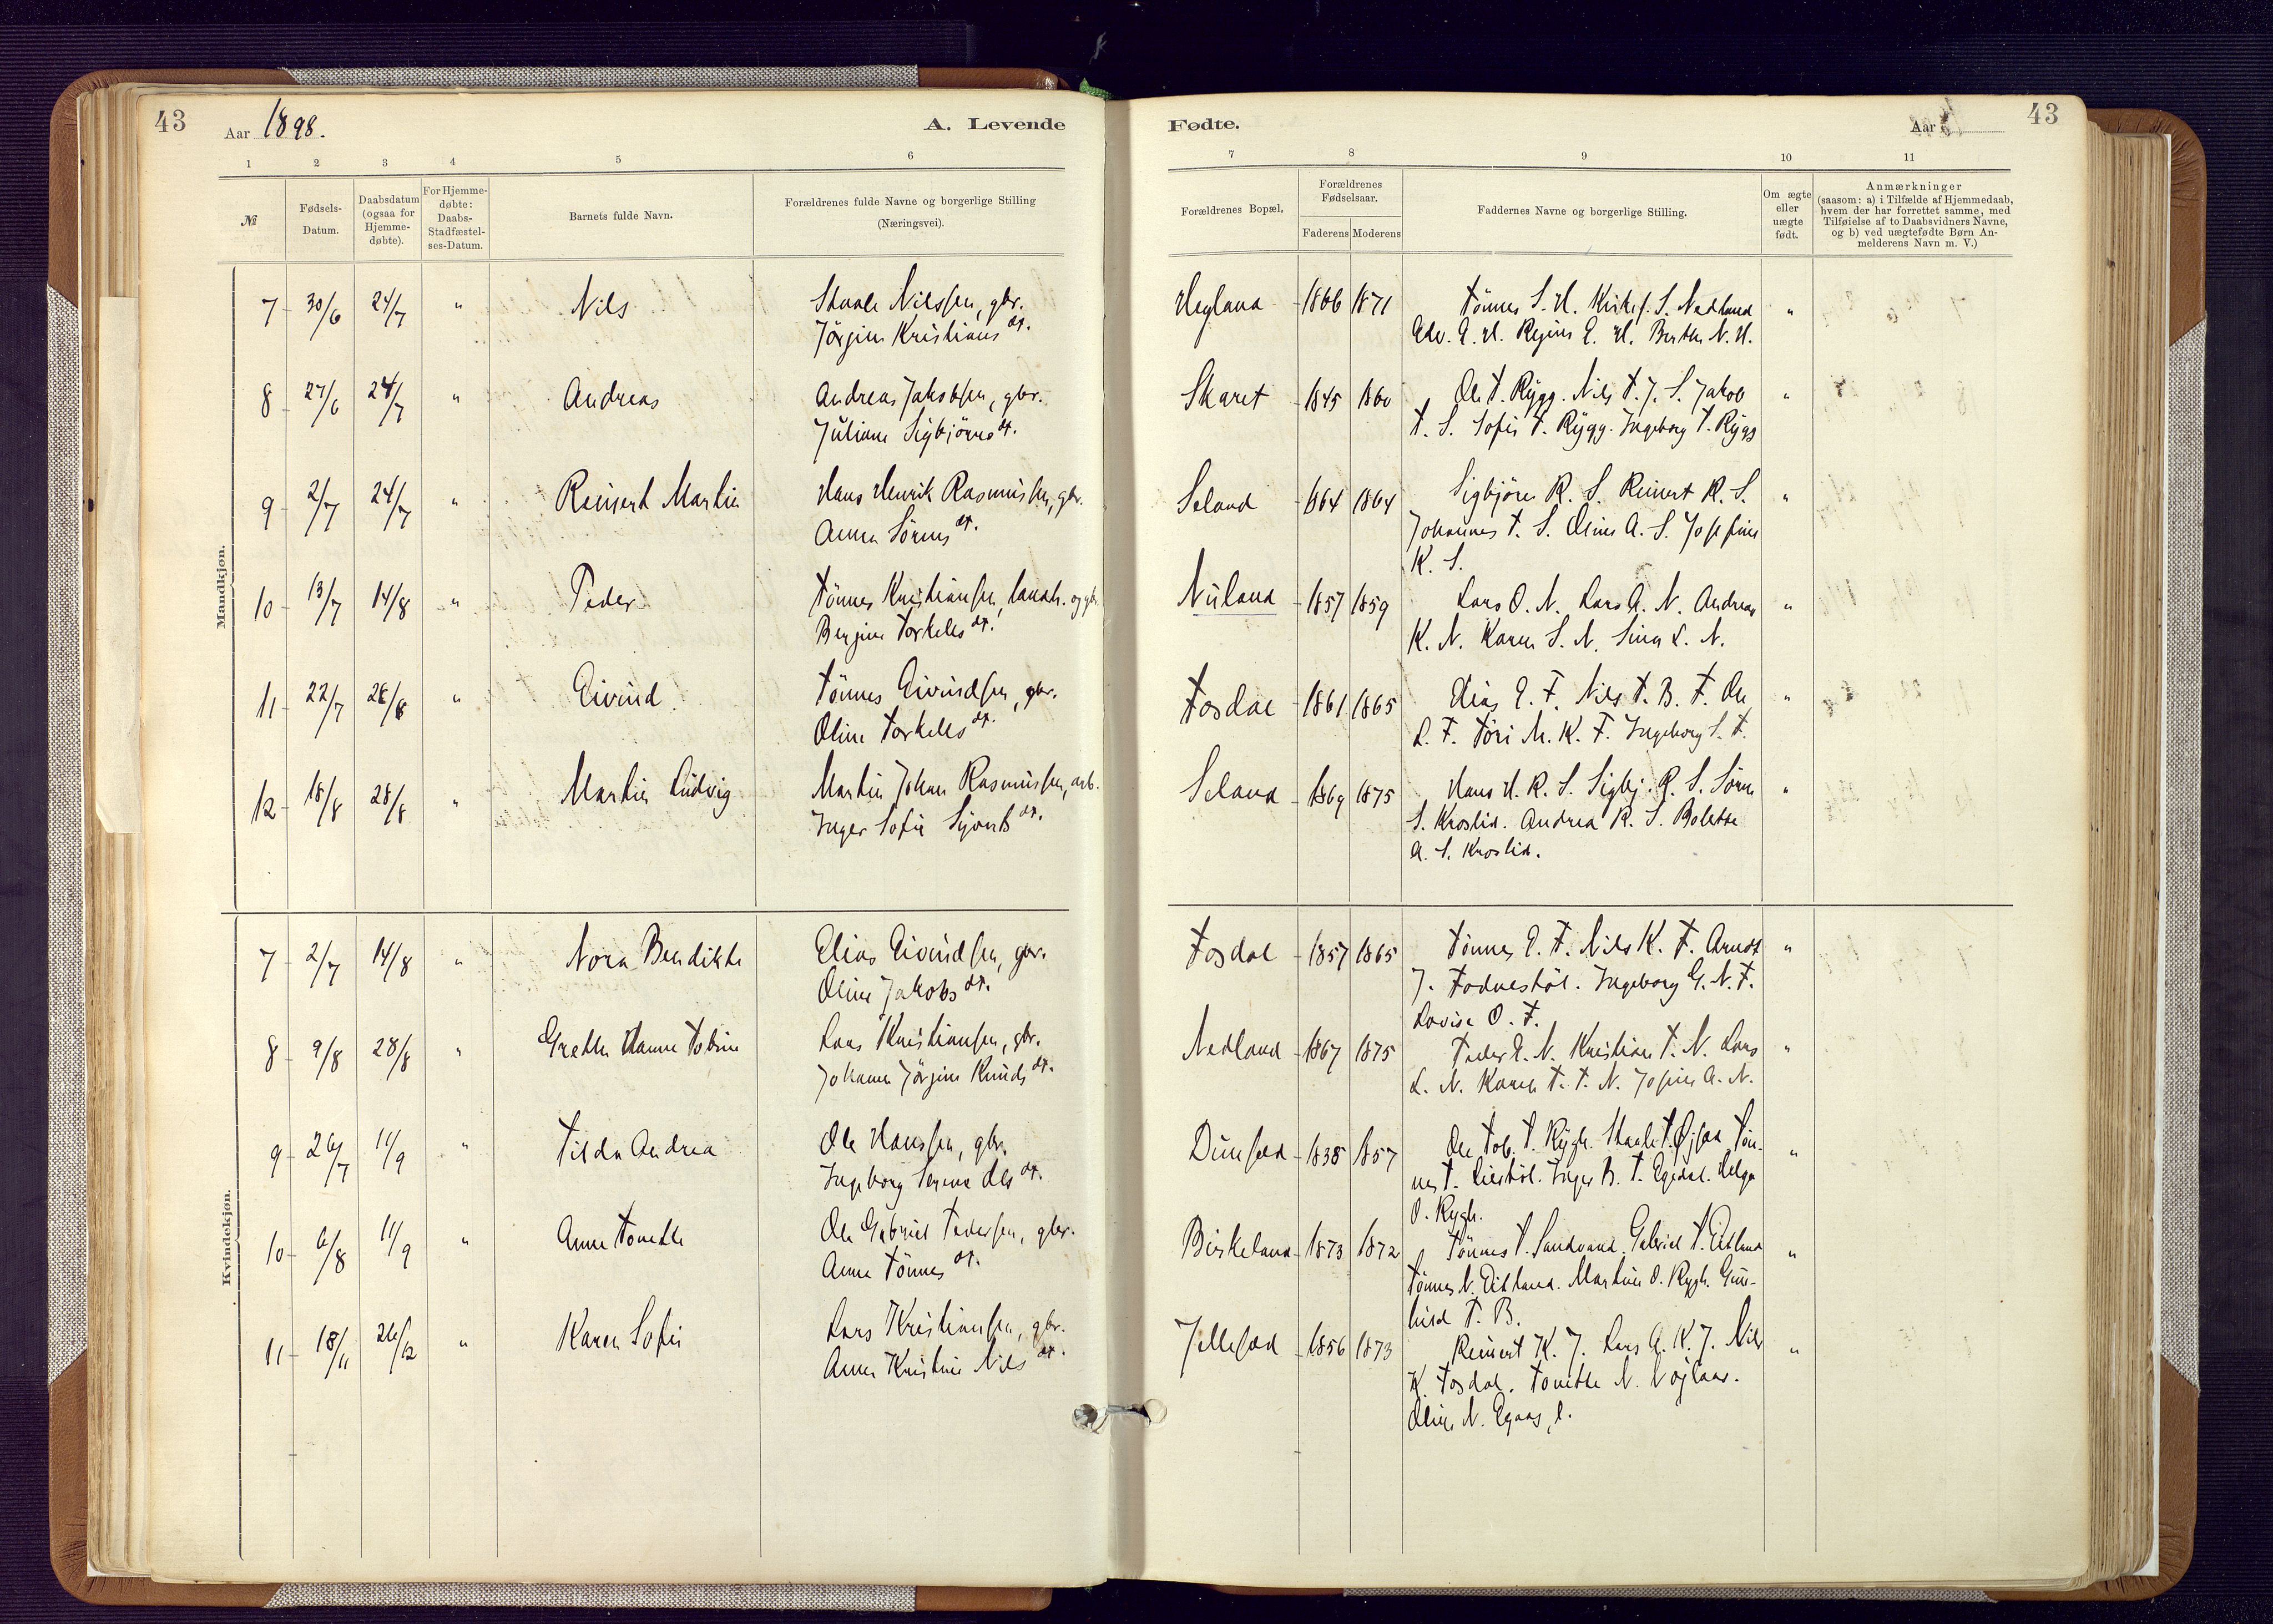 43
Aar 1898.
A. Levende
Fødte.
Aar
43
1 2 3 4 5 6
7 8 9 10 11
№
Fødsels-
Datum.
Daabsdatum
(ogsaa for
Hjemme-
døbte).
For Hjemme-
døbte:
Daabs-
Stadfæstel-
ses-Datum.
Barnets fulde Navn.
Forældrenes fulde Navne og borgerlige Stilling
(Næringsvei).
Forældrenes Bopæl,
Forældrenes
Fødselsaar.
Faderens Moderens
Faddernes Navne og borgerlige Stilling.
Om ægte
eller
uægte
født.
Anmærkninger
(saasom: a) i Tilfælde af Hjemmedaab,
hvem der har forrettet samme, med
Tilføielse af to Daabsvidners Navne,
og b) ved uægtefødte Børn An-
melderens Navn m. V.)
Mandkjøn.
7 30/6 24/7 " Nils Staale Nilssen, gbr. Hegland 1866 1871 Tönnes S. H. S. Nedland "
Jörgine Kristians dt. Edv. E. H. Regine E. H. Berthe N. H.
8 27/6 24/7 " Andreas Andreas Jakobsen, gbr. Skaret 1845 1860 Ole T. Rygg. Nils T. J. S. Jakob "
Juliane Sigbjörns dt. T. S. Sofie T. Rygg. Ingeborg T. Rygg
9 2/7 24/7 " Reinert Martin Hans Henrik Rasmussen, gbr. Seland 1864 1864 Sigbjörn R. S. Reinert R. S. "
Anna Sörens dt. Johannes T. S. Oline A. S. Josefine
K. S.
10 13/7 14/8 " Peder Tönnes Kristiansen, landh. og gbr. Nuland 1857 1859 Lars O. N. Lars A. N. Andreas "
Bergine Torkels dt. K. N. Karen S. N. Sina L. N.
11 22/7 28/8 " Eivind Tönnes Eivindsen, gbr. Tosdal 1861 1865 Elias E. T. Nils T. B. T. Ole "
Oline Torkels dt. L. T. Töri M. K. T. Ingeborg S. T.
12 18/8 28/8 " Martin Ludvig Martin Johan Rasmussen, arb. Seland 1869 1875 Hans H. R. S. Sigbj. R. S. Sören "
Inger Sofie Sjverts dt. S. Kroslid. Andrea R. S. Bolette
A. S. Kroslid.
Kvindekjøn.
7 2/7 14/8 " Nora Bendikte Elias Eivindsen, gbr. Tosdal 1857 1865 Tönnes E. T. Nils K. T. Arndt "
Oline Jakobs dt. J. Todnestöl. Ingeborg G. N. T.
Lovise O. T.
8 9/8 28/8 " Grethe Hanne Tobine Lars Kristiansen, gbr. Nedland 1867 1875 Peder E. N. Kristian T. N. Lars "
Johanne Jörgine Knuds dt. L. N. Karen T. T. N. Josine A. N.
9 26/7 11/9 " Tilda Andrea Ole Hanssen, gbr. Dunsæd 1838 1857 Ole Tob. T. Rygh. Staale T. Øisæd Tön- "
Ingeborg Serine Ols dt. nes T. Liestöl. Inger B. T. Egedal. Helga
O. Rygh.
10 6/8 11/9 " Anne Tonette Ole Gabriel Pedersen, gbr. Birkeland 1873 1872 Tönnes T. Sandvand. Gabriel T. Eitland "
Anne Tönnes dt. Tönnes N. Eitland. Martine O. Rygh. Gun-
hild T. B.
11 18/11 26/12 " Karen Sofie Lars Kristiansen, gbr. Jillesæd 1856 1873 Reinert K. J. Lars A. K. J. Nils "
Anne Kristine Nils dt. K. Tosdal. Tonette N.
Oline N.